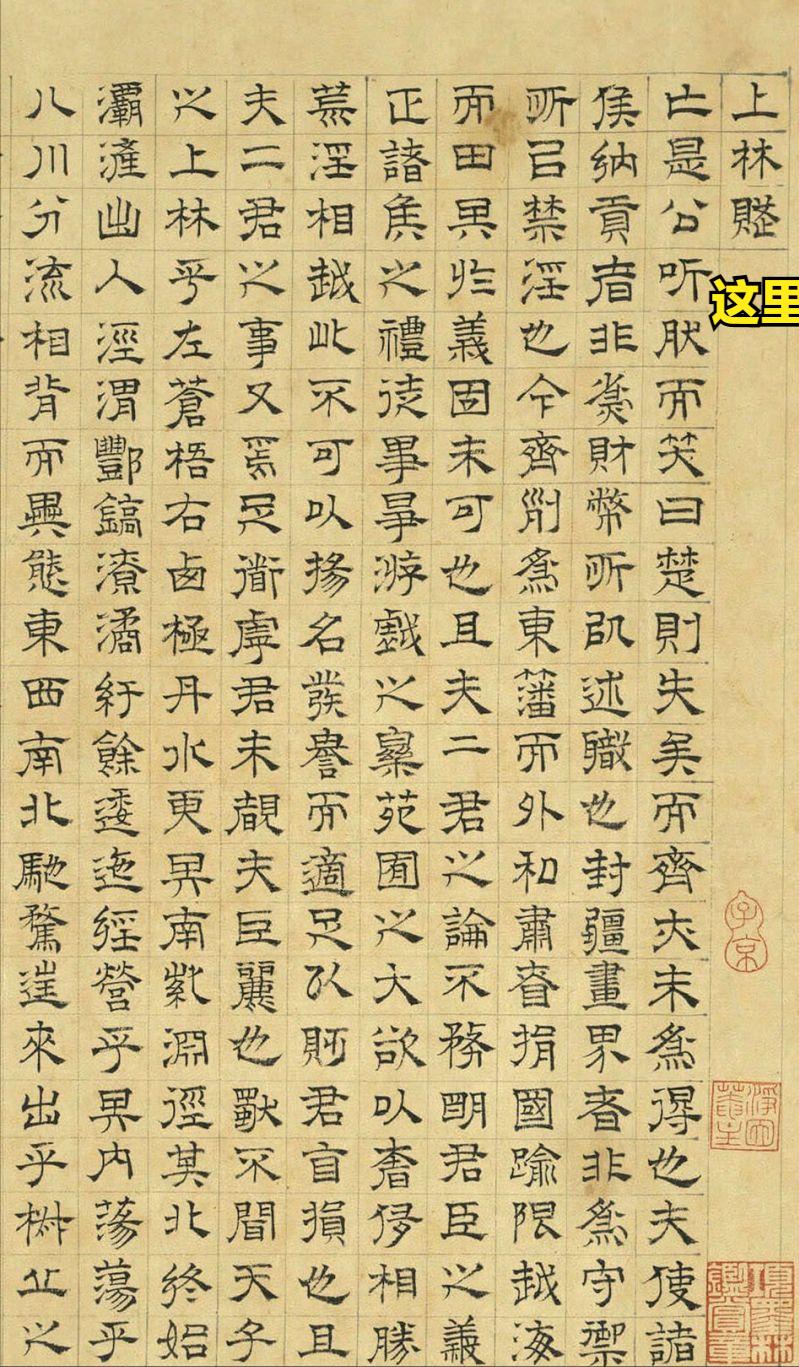 上林賦
亡是公听肰而笑曰楚則失矣而齊亦未為得也夫使諸
侯納貢者非為財幣所以述職也封疆畫界者非為守禦
所以禁淫也今齊列為東藩而外私肅眘捐國踰限越海
而田其於義固未可也且夫二君之論不務明君臣之義
正諸侯之禮徒事爭游戲之樂苑囿之大欲以奢侈相勝
荒淫相越此不可以揚名發譽而適足以貶君自損也且
夫二君之事又焉足道虖君未覩夫巨麗也獨不聞天子
之上林乎左蒼梧右西極丹水更其南紫淵徑其北終始
灞滻出入涇渭酆鎬潦潏紆餘逶迤經營乎其內蕩蕩乎
八川分流相背而異態東西南北馳騖往來出乎椒丘之
这里
子京